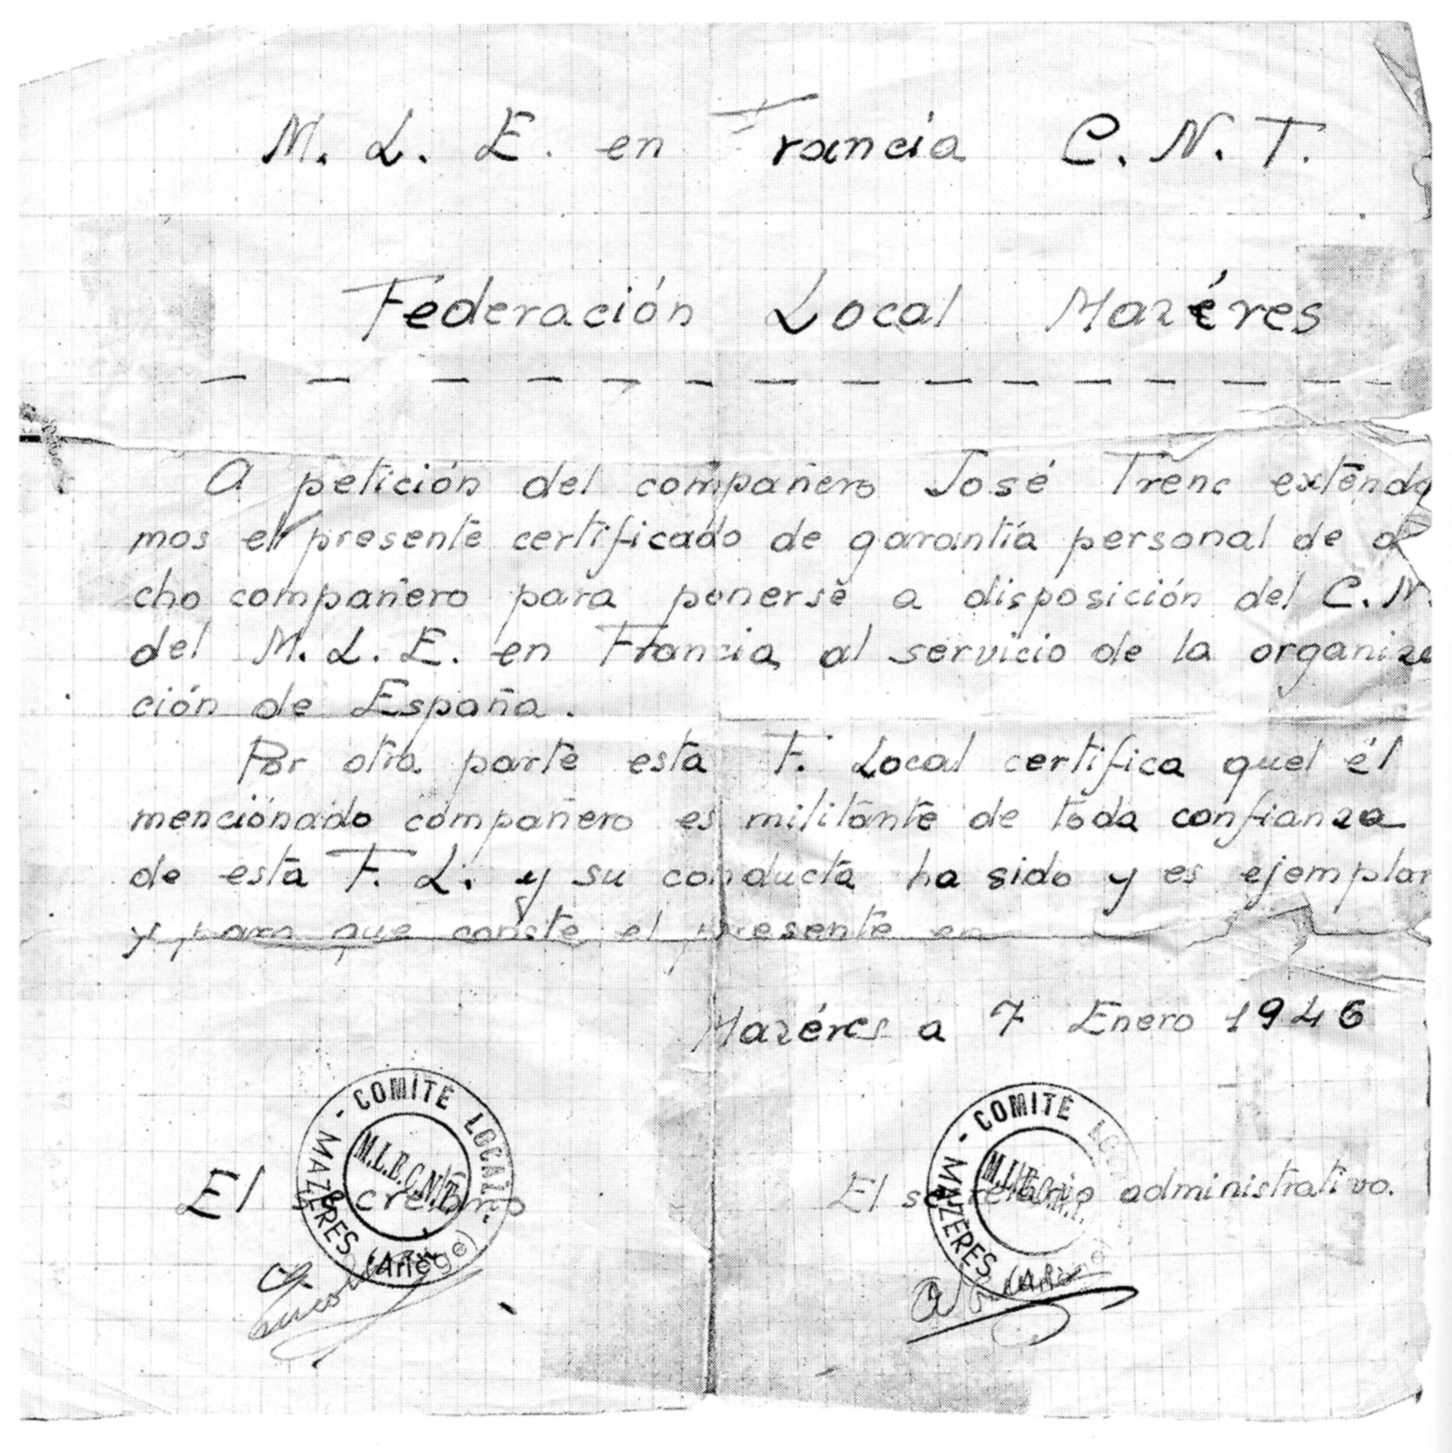 M. L. E. en Francia C. N. T.
Federación Local Mazéres
A petición del compañero José Trenc extendo
mos el presente certificado de garantía personal de d
cho compañero para ponerse a disposición del C. N.
del M. L. E. en Francia al servicio de la organiza
ción de España.
Por otra parte esta F. Local certifica quel él
mencionado compañero es militante de toda confianza
de esta F. L. y su conducta ha sido y es ejemplar
y para que conste el presente en
Mazéres a 7 Enero 1946
- COMITÉ LOCAL - MAZERES (Ariège)
M.L.E. C.N.T.
El secretario
- COMITÉ LOCAL MAZERES
M.L.E. C.N.T.
El secretario administrativo.